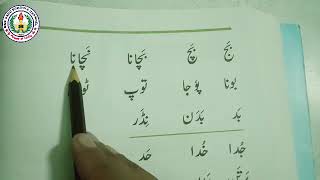 بَج بَچ بَچانا نَچانا
بونا پوجا توپ
بَد بَدَن نِڈَر
جُدا خُدا حَد